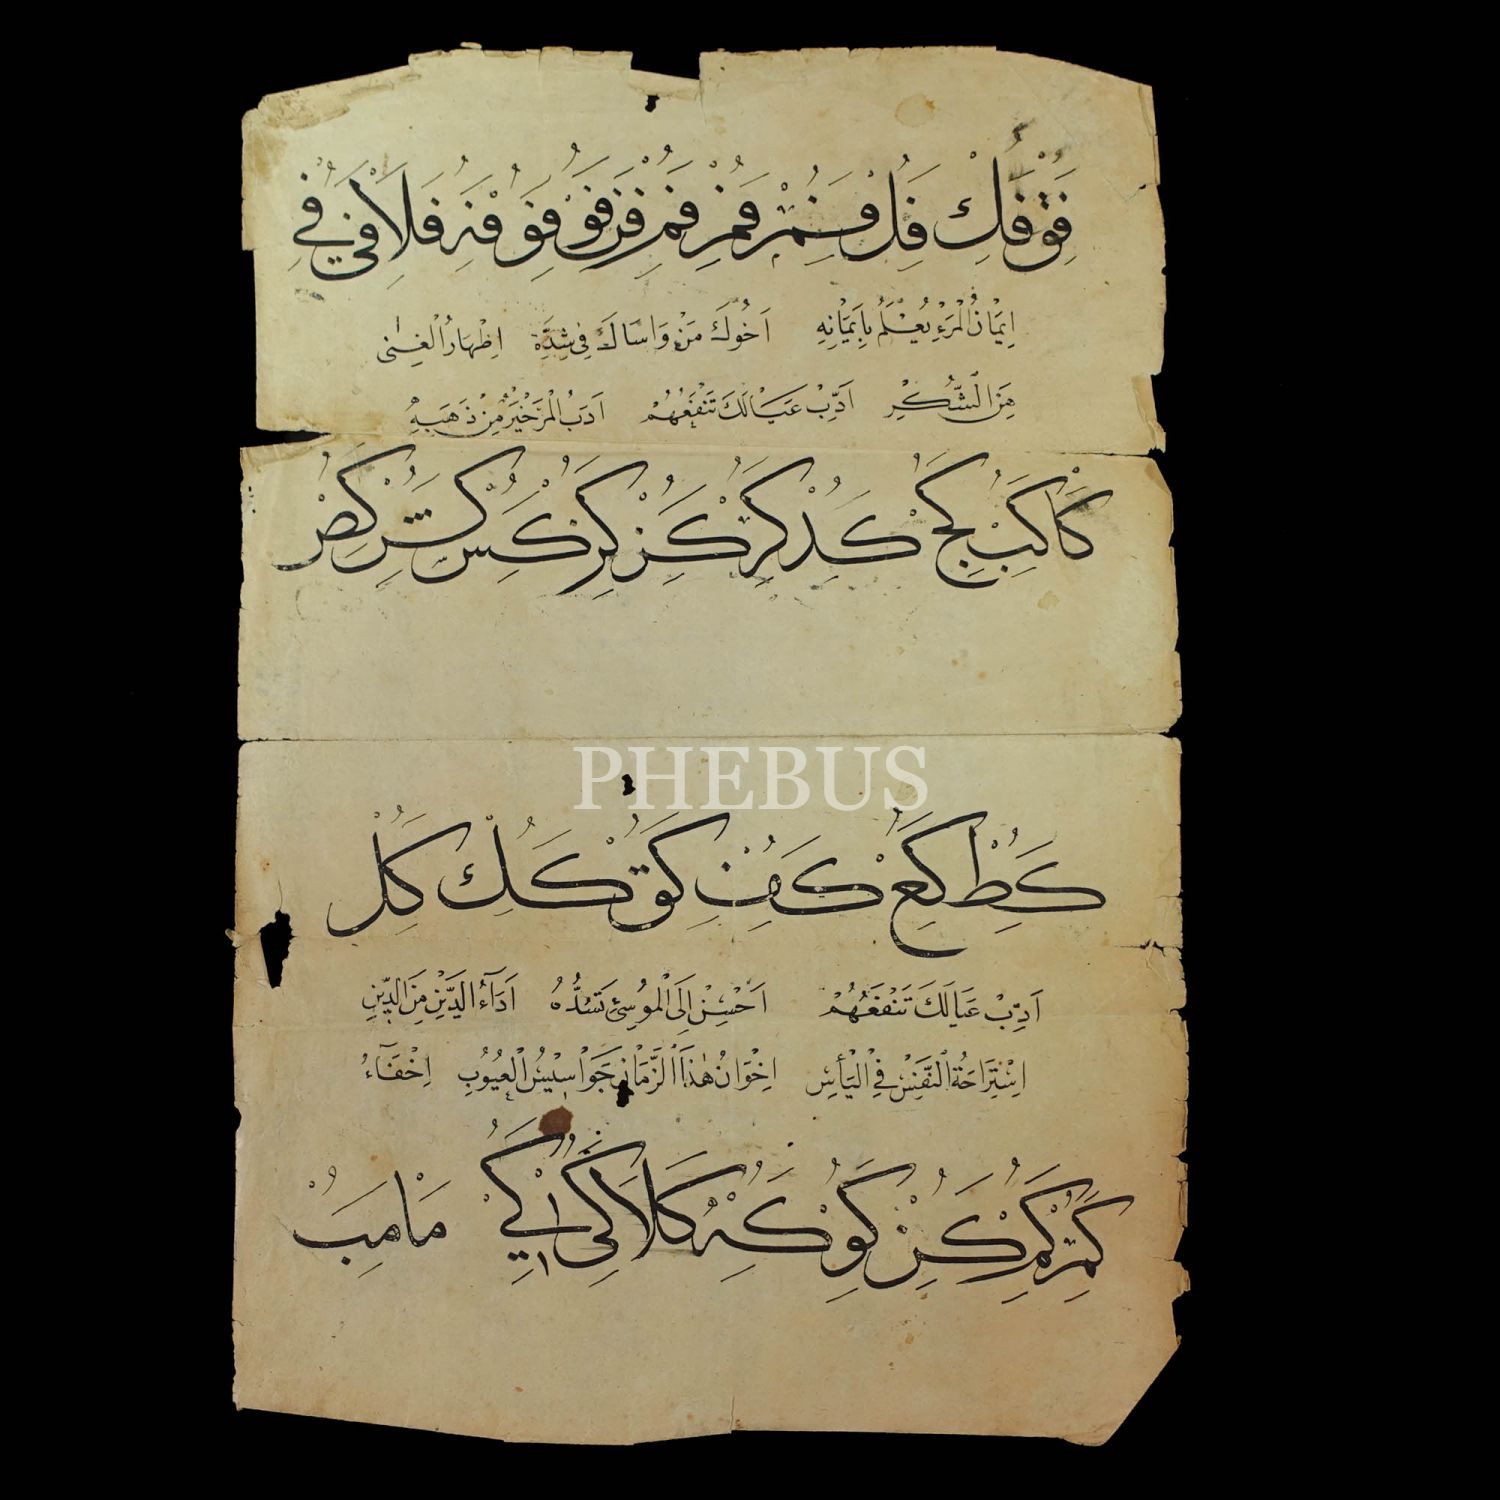 فق فك فل فم فم فمن فن فو فو فه فلا فى في
اِيمَانُ الْمَرْءِ يُعْلَمُ بِاَيْمَانِهِ اَخُوكَ مَنْ وَاسَاكَ فِى شِدَّةٍ اِظْهَارُ الْغِنٰى
مِنَ الشُّكْرِ اَدِّبْ عَيَالَكَ تَنْفَعْهُمْ اَدَبُ الْمَرْءِ خَيْرٌ مِنْ ذَهَبِهِ
كا كب كج كد كر كز كر كس كش كص
PHEBUS
كط كع كف كق كك كل
اَدِّبْ عَيَالَكَ تَنْفَعْهُمْ اَحْسِنْ اِلَى الْمُوسِئِ تَسُدُّهُ اَدَاءُ الدَّيْنِ مِنَ الدِّينِ
اِسْتِرَاحَةُ النَّفْسِ فِى الْيَأْسِ اِخْوَانُ هٰذَا الزَّمَانِ جَوَاسِيسُ الْعُيُوبِ اِخْفَاءُ
كم كم كن كو كه كلا كى كي ما مب